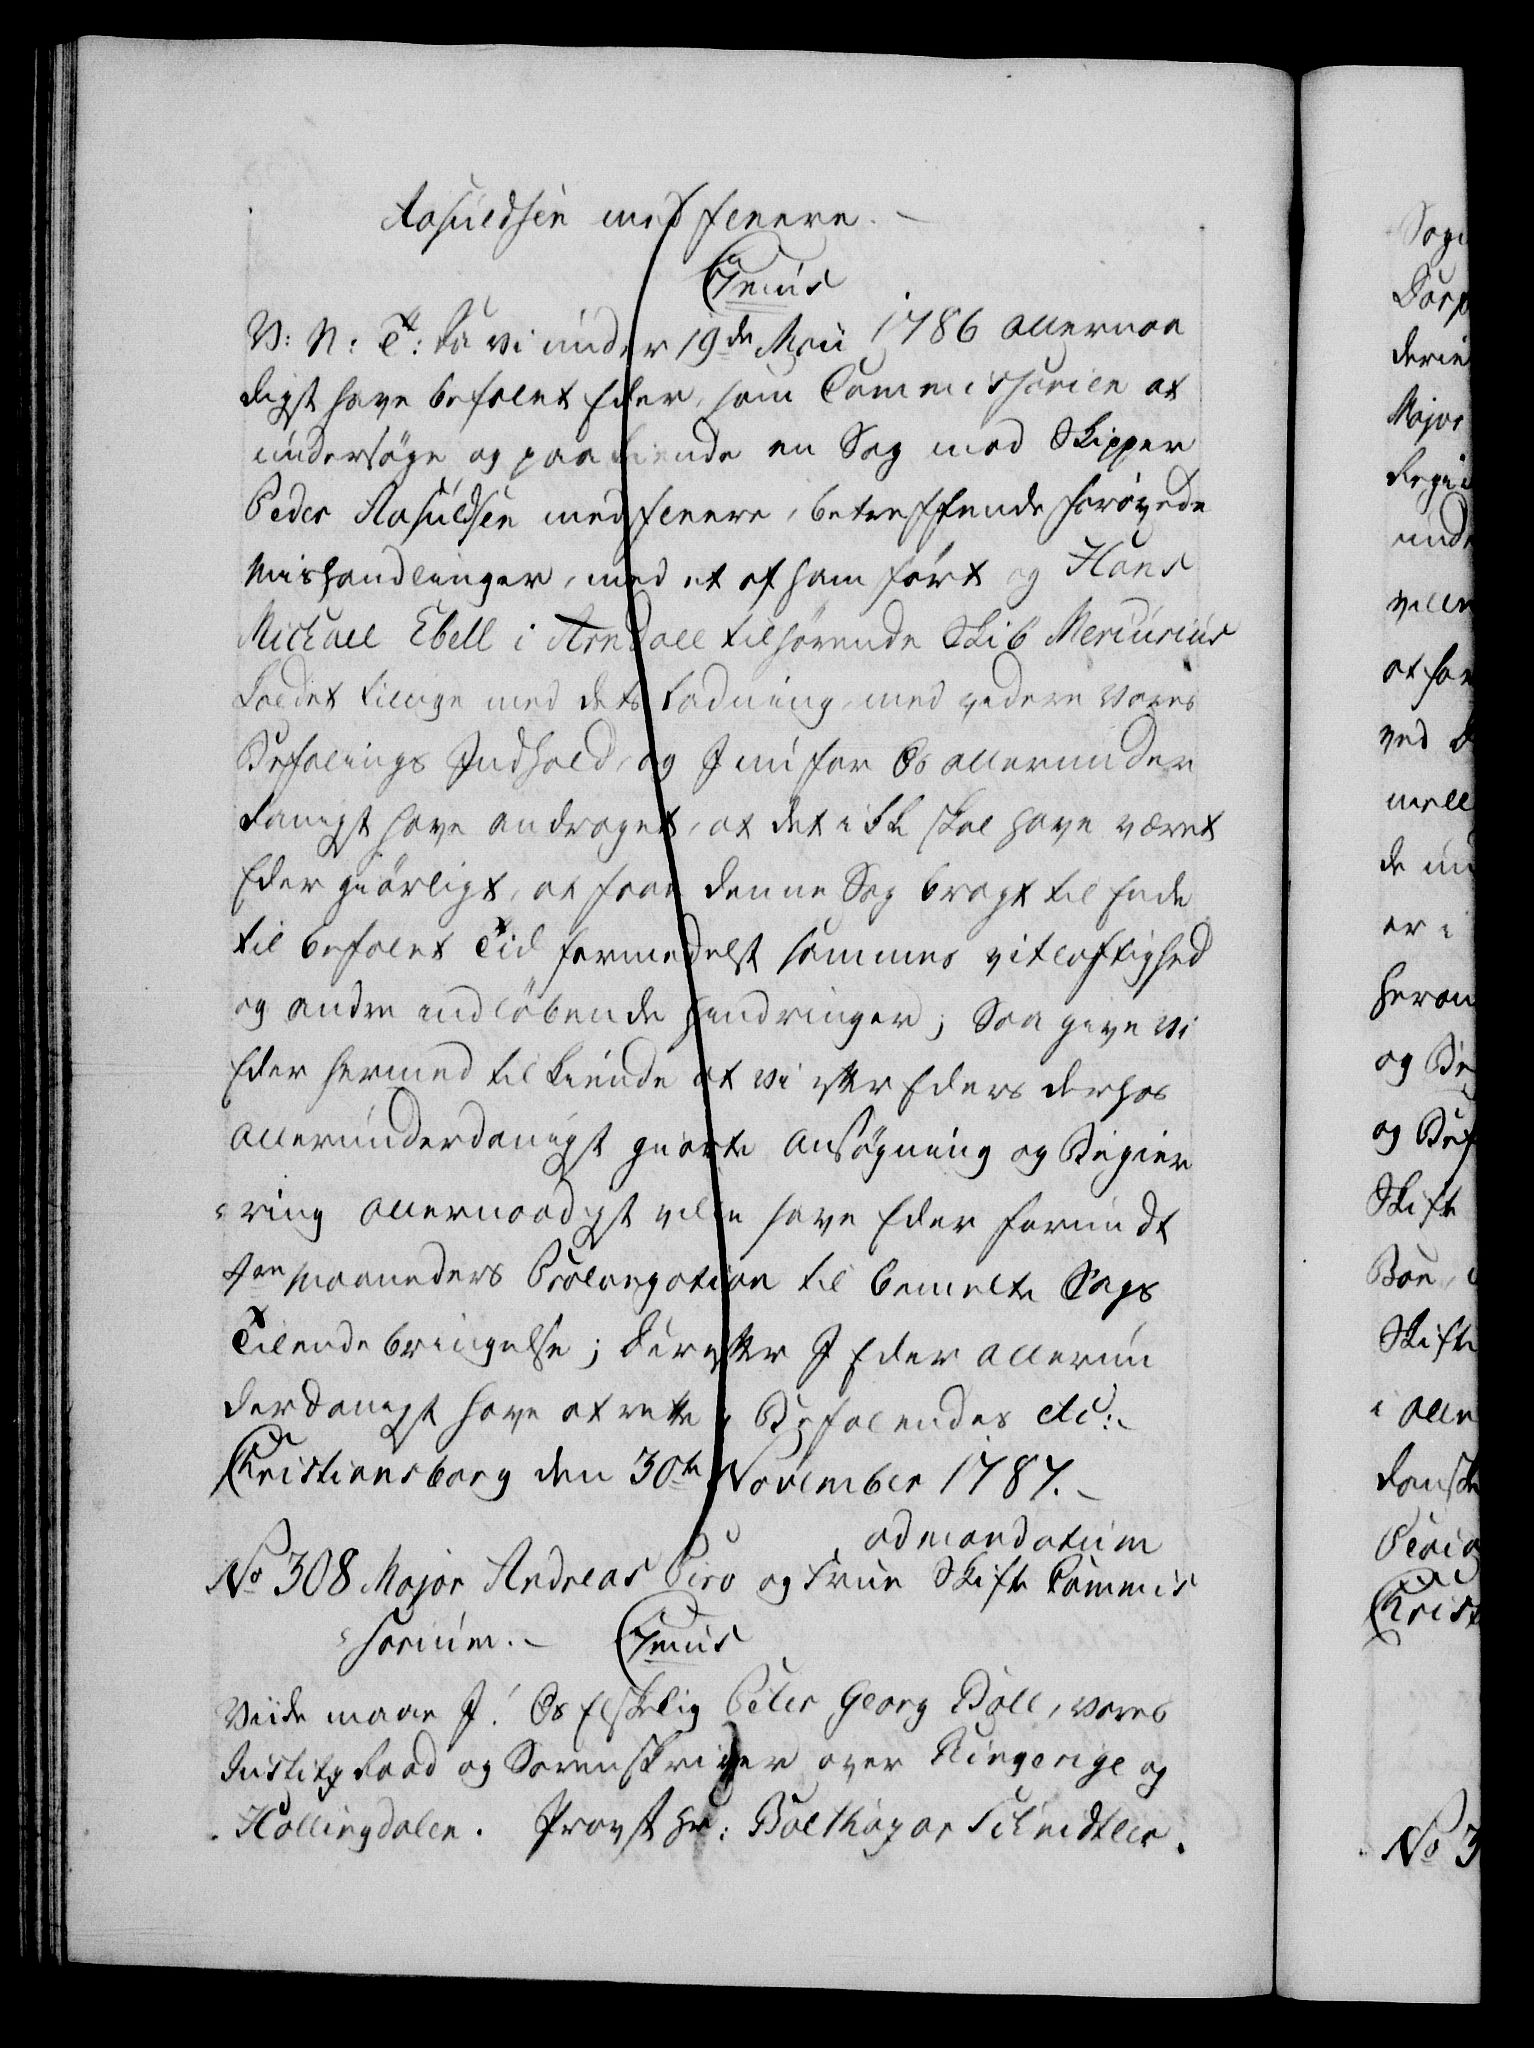 Aasuldsen med fleere.
C7mus
V: N: T: Da vi under 19de Maii 1786 allernaa
digst have befalet Eder, som Commissarier at
undersøge og paakiende en Sag mod Skipper
Peder Aasuldsen med fleere, betreffende forøvede
Mishandlinger, med et af ham ført og Hans
Michael Ebell i Arendall tilhørende Skib Mercurius
kaldet tillige med dets Ladning, med videre Vores
Befalings Indhold, og I nu for Os allerunder
danigst have andraget, at det ikke skal have været
Eder giørligt, at faae denne Sag bragt til Ende
til befalet Tid formedelst sammes vitløftighed
og andre indløbende hindringer; Saa give vi
Eder hermed tilkiende at vi efter Eders derhos
allerunderdanigst giorte Ansøgning og Begiæ
ring allernaadigst ville have Eder forundt
Maaneders Prolongation til bemelte Sags
Tilendebringelse; derefter I Eder allerun
derdanigst have at rette, Befalendes etc:
Christiansborg den 30te November 1787.
ad mandatum
No 308 Major Andreas Piro og Frue Skifte Commis
sarium. C7mus
Viide maae I! Os Elskelig Peter Georg Ball, vores
Justitz Raad og Sorenskriver over Ringerige og
Hallingdalen. Provst Hr: Balthazar Schnidtler.
Sag
derin
Major
unde
at ha
ved
mell
de un
er i
og Be
og Bef
Skifte
Boe
Skifte
i alle
danske
Christ
No 3